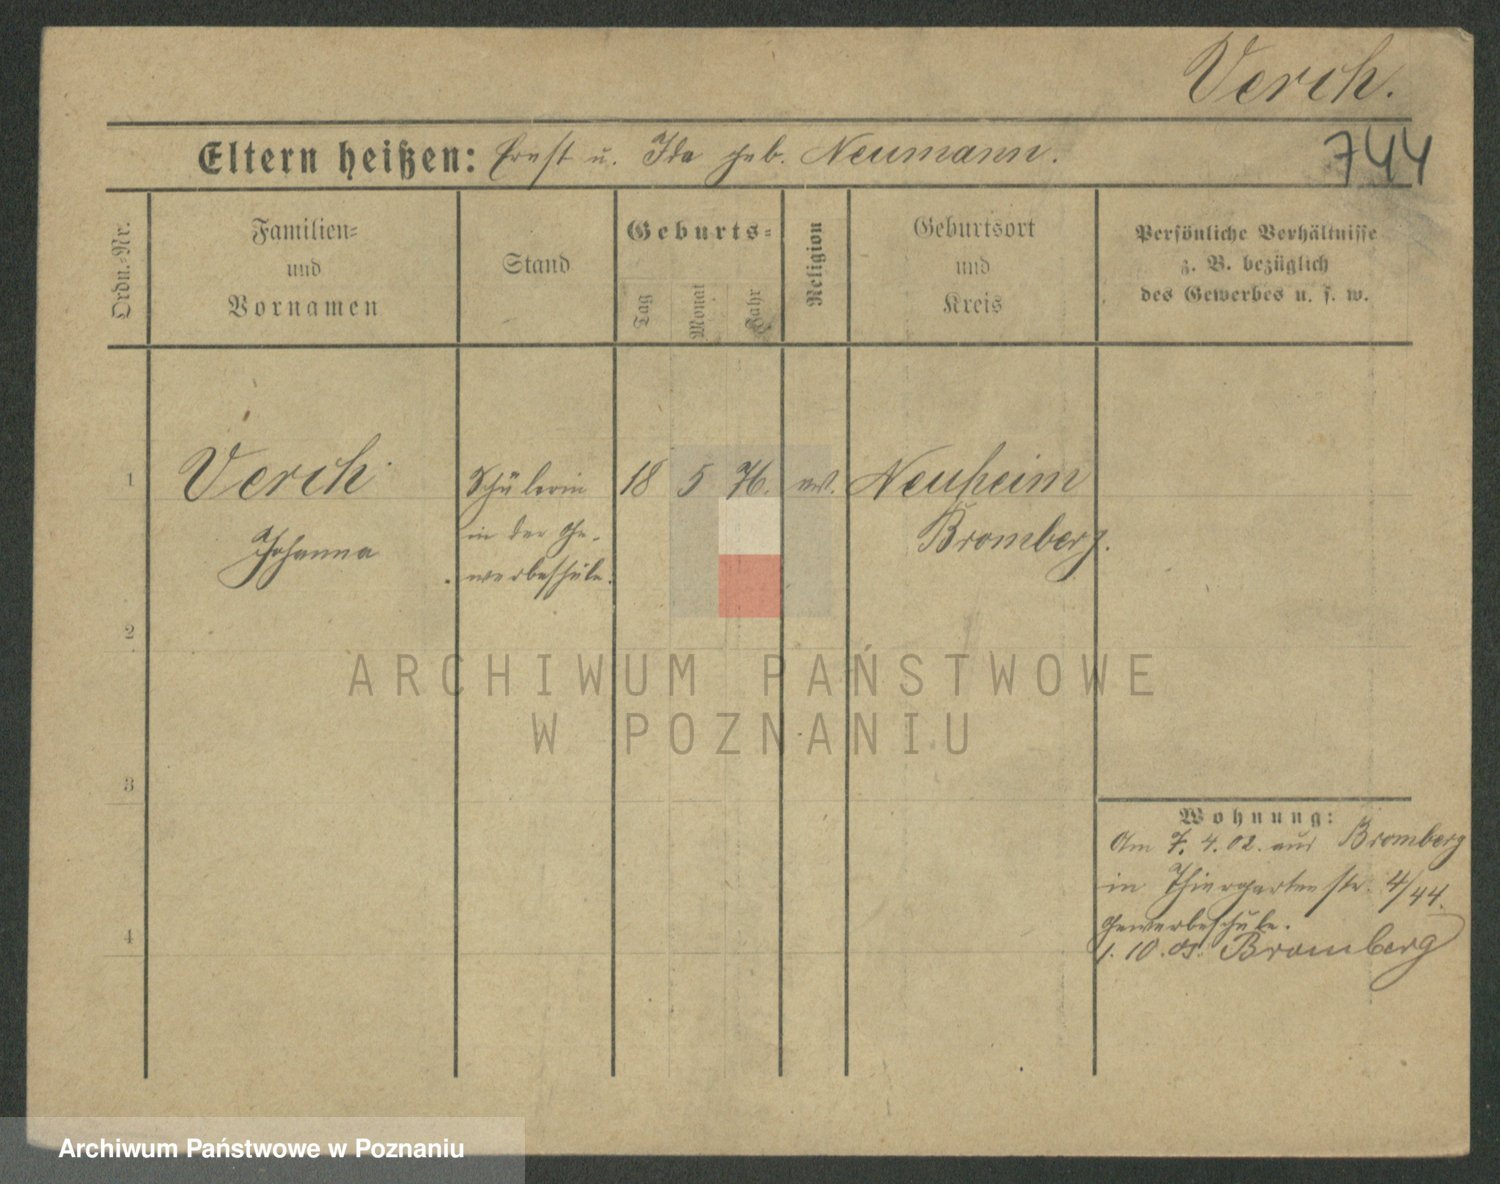 Verch.
Eltern heißen: Ernst u. Ida geb. Neumann.
744
Ordn.-Nr.
Familien-
und
Vornamen
Stand
Geburts-
Tag
Monat
Jahr
Religion
Geburtsort
und
Kreis
Persönliche Verhältnisse
z. B. bezüglich
des Gewerbes u. s. w.
1
Verch
Johanna
Schülerin
in der Ge-
werbeschule.
18 5 76. ev.
Neuheim
Bromberg.
2
3
4
ARCHIWUM PAŃSTWOWE
W POZNANIU
Wohnung:
Am 7. 4. 02. aus Bromberg
in Thiergartenstr. 4/44.
Gewerbeschule.
1. 10. Bromberg
Archiwum Państwowe w Poznaniu